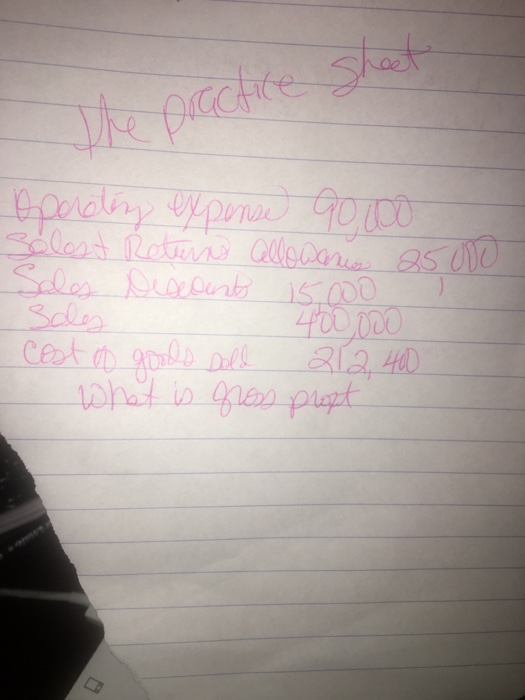 The practice sheet
Operating expense 90,000
Sales & Returns allowances 25,000
Sales Discounts 15,000
Sales 400,000
Cost of goods sold 212,400
What is gross profit